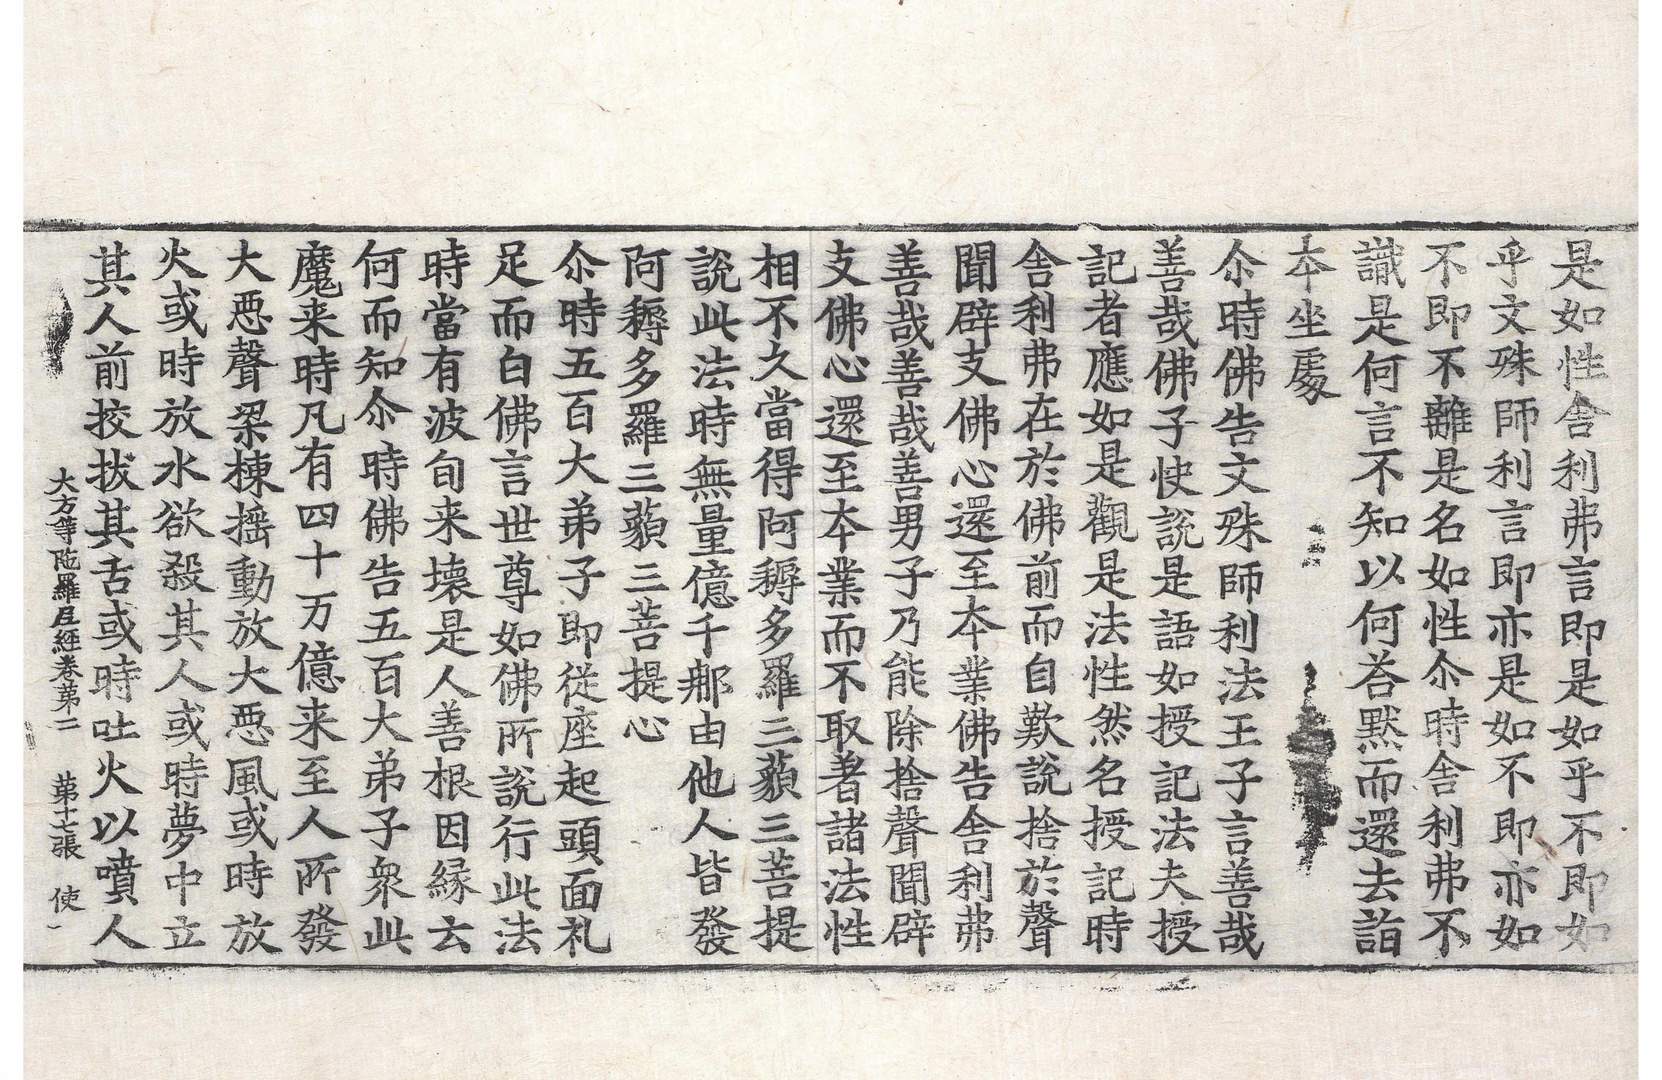 是如性舍利弗言即是如乎不即如
乎文殊師利言即亦是如不即亦如
不即不離是名如性尒時舍利弗不
識是何言不知以何荅默而還去詣
本坐處
尒時佛告文殊師利法王子言善哉
善哉佛子快說是語如授記法夫授
記者應如是觀是法性然名授記時
舍利弗在於佛前而自歎說捨於聲
聞辟支佛心還至本業佛告舍利弗
善哉善哉善男子乃能除捨聲聞辟
支佛心還至本業而不取著諸法性
相不久當得阿耨多羅三藐三菩提
說此法時無量億千那由他人皆發
阿耨多羅三藐三菩提心
尒時五百大弟子即從座起頭面礼
足而白佛言世尊如佛所說行此法
時當有波旬来壞是人善根因縁云
何而知尒時佛告五百大弟子衆此
魔来時凡有四十万億来至人所發
大惡聲梁棟揺動放大惡風或時放
火或時放水欲殺其人或時夢中立
其人前挍拔其舌或時吐火以噴人
大方等陁羅尼經卷苐二　苐十七張　使